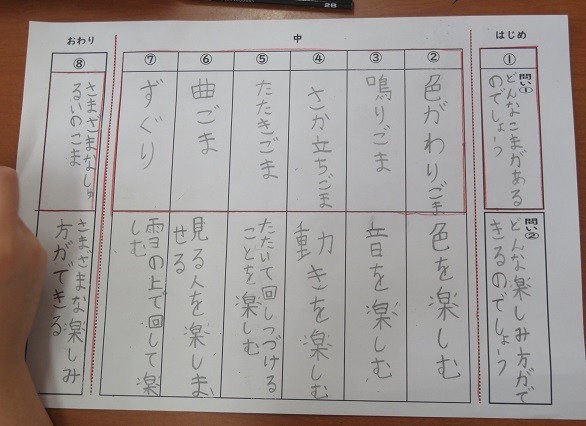 はじめ
①
問い①
どんなこまがある
のでしょう
問い②
どんな楽しみ方がで
きるのでしょう
中
②
色がわりごま
色を楽しむ
③
鳴りごま
音を楽しむ
④
さか立ちごま
動きを楽しむ
⑤
たたきごま
たたいて回しつづける
ことを楽しむ
⑥
曲ごま
見る人を楽しま
せる
⑦
ずぐり
雪の上で回して楽
しむ
おわり
⑧
さまざまなしゅ
るいのこま
さまざまな楽しみ
方ができる
2B